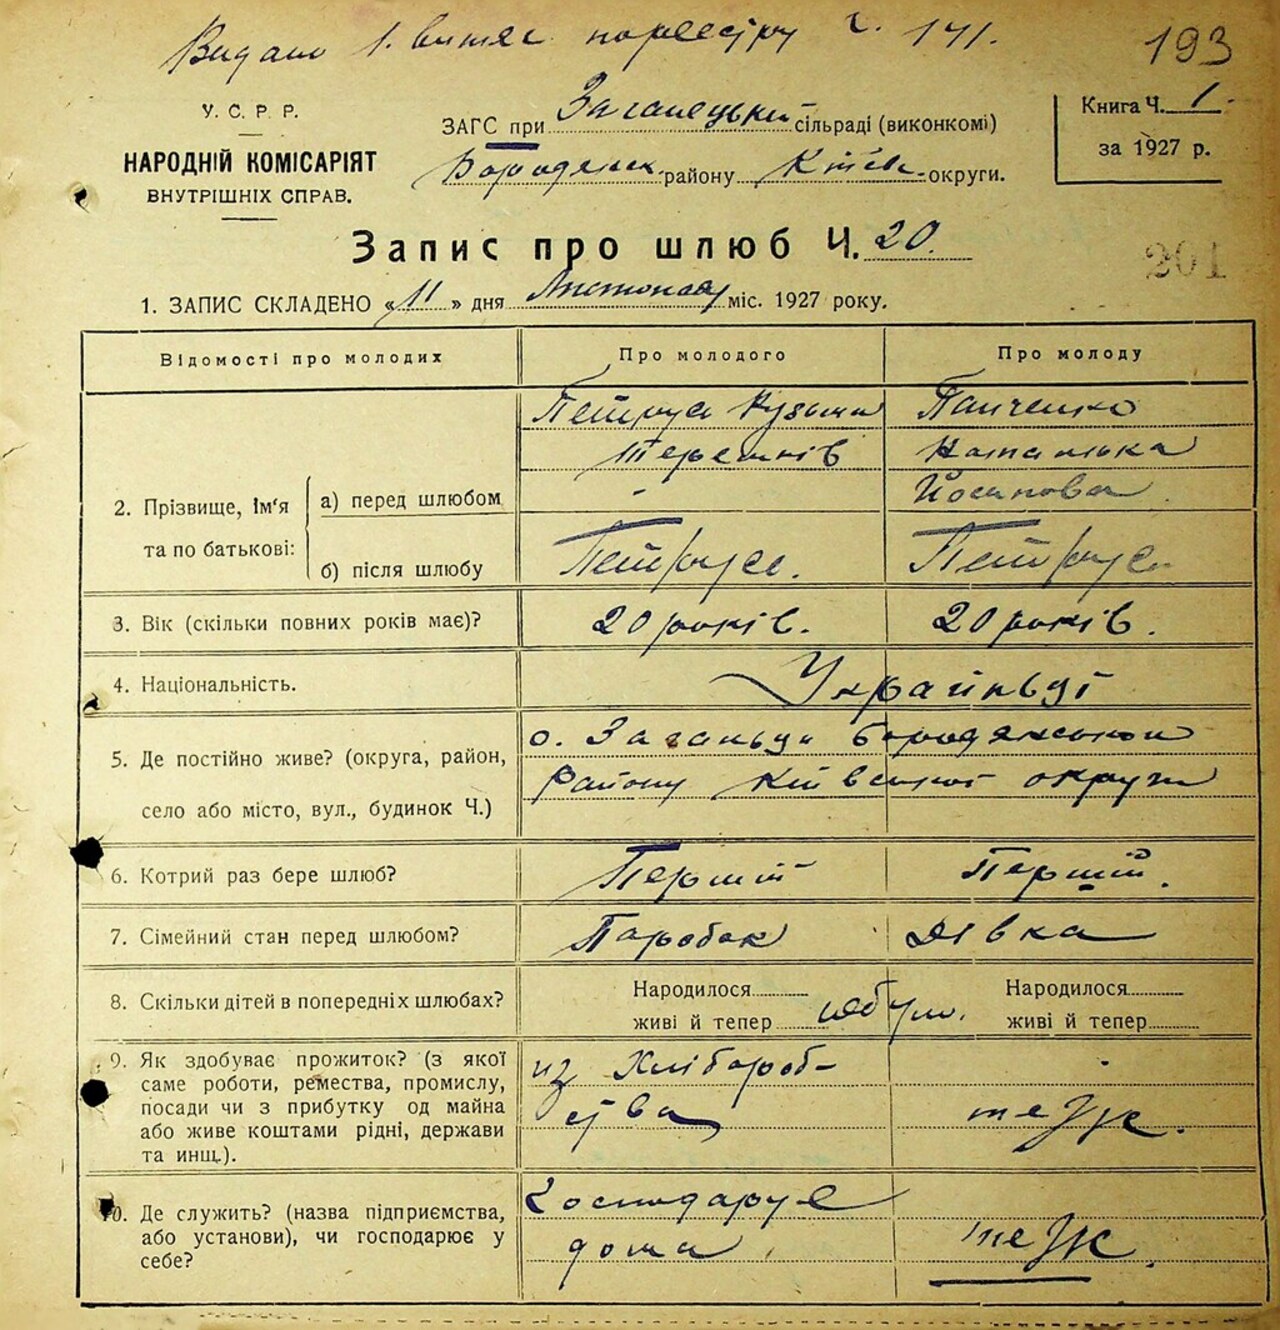 Видано 1. витяг по реєстру Ч. 141.
193
У. С. Р. Р.
НАРОДНІЙ КОМІСАРІЯТ
ВНУТРІШНІХ СПРАВ.
ЗАГС при Заганецький сільраді (виконкомі)
Бородянськ. району Київськ. округи.
Книга Ч. 1.
за 1927 р.
Запис про шлюб Ч. 20.
201
1. ЗАПИС СКЛАДЕНО «11» дня Листопада міс. 1927 року.
Відомості про молодих
Про молодого
Про молоду
2. Прізвище, Ім‘я та по батькові:
а) перед шлюбом
Петрусь Кузьма
Терешків
Панченко
Наталька
Йосипова
б) після шлюбу
Петрусь.
Петрусь
3. Вік (скільки повних років має)?
20 років.
20 років.
4. Національність.
Україньці
5. Де постійно живе? (округа, район,
село або місто, вул., будинок Ч.)
с. Заганьци Бородянського
Району Київської округи
6. Котрий раз бере шлюб?
Перший
Перший.
7. Сімейний стан перед шлюбом?
Паробок
Дівка
8. Скільки дітей в попередніх шлюбах?
Народилося
живі й тепер
небуло.
Народилося
живі й тепер
9. Як здобуває прожиток? (з якої
саме роботи, ремества, промислу,
посади чи з прибутку од майна
або живе коштами рідні, держави
та инщ.).
из Хлібороб-
ства
теж.
10. Де служить? (назва підприємства,
або установи), чи господарює у
себе?
Господарує
дома
теж.